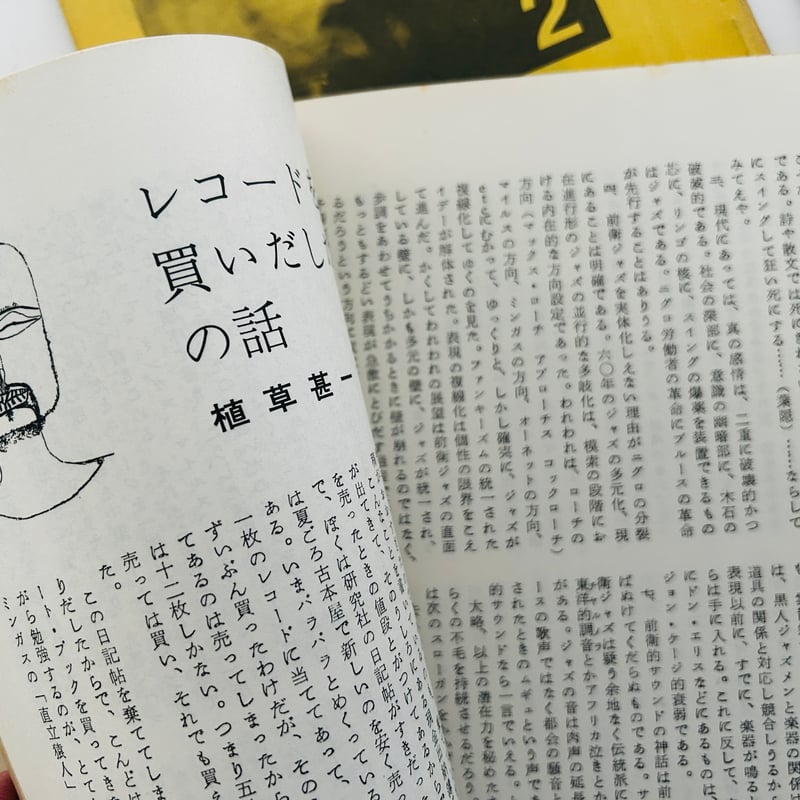 2
レコードを
買いだし
の話
植草甚一
が出てきて、そのうしろに
を売ったときの値段とかがつけてあるから
で、ぼくは研究社の日記帖がすきだっ
は夏ごろ古本屋で新しいのを安く売っ
ある。いまパラパラとめくっている
一枚のレコードに当ててあって、
ずいぶん買ったわけだが、その
てあるのは売ってしまったから
は十二枚しかない。つまり五
売っては買い、それでも買え
た。
この日記帖を棄ててしま
りだしたからで、こんどは
ート・ブックを買ってき
がら勉強するのが、とて
ミンガスの「直立猿人」
である。詩や散文では死に
にスイングして狂い死にする……（薬隠）……ならして
みてえや。
三、現代にあっては、真の感情は、二重に破壊的かつ
破壊的である。社会の深部に、意識の幽暗部に、木石の
芯に、リンゴの核に、スイングの爆薬を装置できるもの
はジャズである。ニグロ労働者の革命にブルースの革命
が先行することはありうる。
四、前衛ジャズを実体化しえない理由がニグロの分裂
にあることは明確である。六〇年のジャズの多元化、現
在進行形のジャズの並行的な多岐化は、模索の段階にお
ける内在的な方向設定であった。われわれは、ローチの
方向（マックス・ローチ アプローチス コックローチ）
マイルスの方向、ミンガスの方向、オーネットの方向、
etcにむかって、ゆっくりと、しかし確実に、ジャズが
複線化してゆくのを見た。ファンキーズムの統一された
イデーが解体された。表現の複線化は個性の限界をこえ
て進んだ。かくしてわれわれの展望は前衛ジャズの直面
している壁に、しかも多元の壁に、ジャズが統一され、
歩調をあわせてうちかかるときに壁が崩れるのではなく、
もっともするどい表現が急激にとびだす
るだろうという方向に
は、黒人ジャズメンと楽器の関
道具の関係と対応し競合しうるから
表現以前に、すでに、楽器が鳴る
らは手に入れる。これに反して、
にドン・エリスなどにあるものは
ジョン・ケージ的衰弱である。
七、前衛的サウンドの神話は前
ばぬけてくだらぬものである。サ
衛ジャズは疑う余地なく伝統派に
東洋的音調とかアフリカ泣きとか
がある。ジャズの音は肉声の延長
ースの歌声ではなく都会の騒音と
されたときのムギュという声でも
的サウンドなら一言でいえる。
大略、以上の潜在力を秘めた
らくの不毛を持続させるだろう
は次のスローガンを